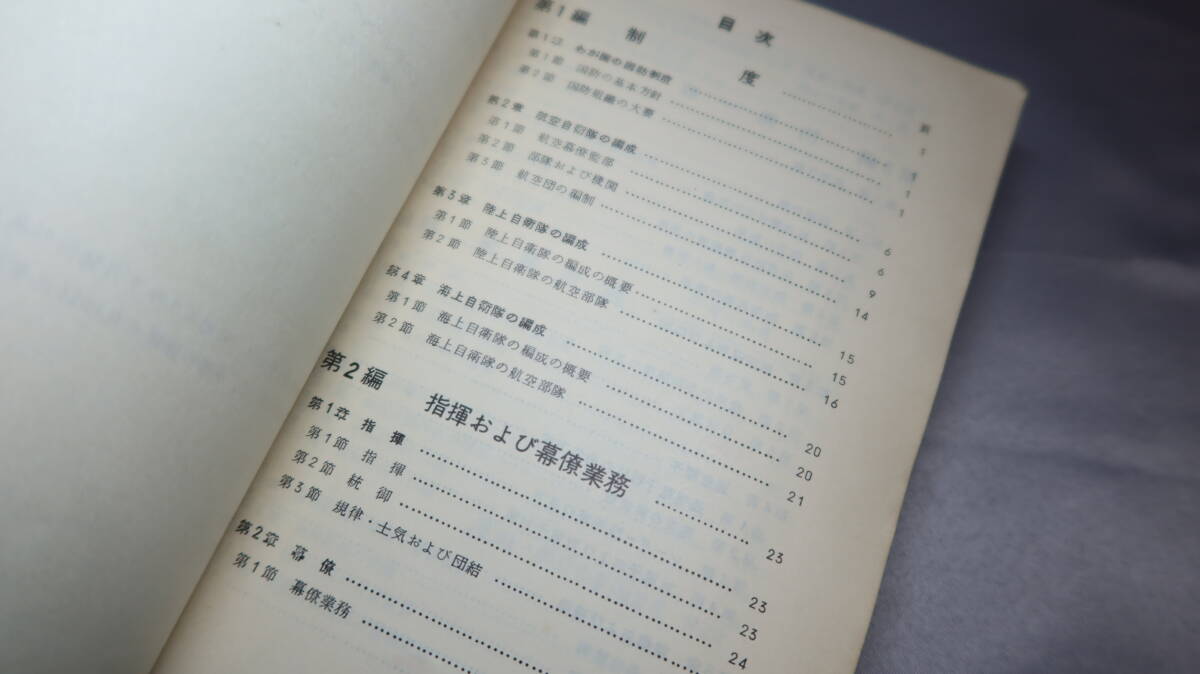 目次
第1編 制度 …… 頁
第1章 わが国の国防制度 …… 1
第1節 国防の基本方針 …… 1
第2節 国防組織の大要 …… 1
第2章 航空自衛隊の編成 …… 6
第1節 航空幕僚監部 …… 6
第2節 部隊および機関 …… 9
第3節 航空団の編制 …… 14
第3章 陸上自衛隊の編成 …… 15
第1節 陸上自衛隊の編成の概要 …… 15
第2節 陸上自衛隊の航空部隊 …… 16
第4章 海上自衛隊の編成 …… 20
第1節 海上自衛隊の編成の概要 …… 20
第2節 海上自衛隊の航空部隊 …… 21
第2編 指揮および幕僚業務 …… 23
第1章 指揮 …… 23
第1節 指揮 …… 23
第2節 統御 …… 24
第3節 規律・士気および団結
第2章 幕僚
第1節 幕僚業務